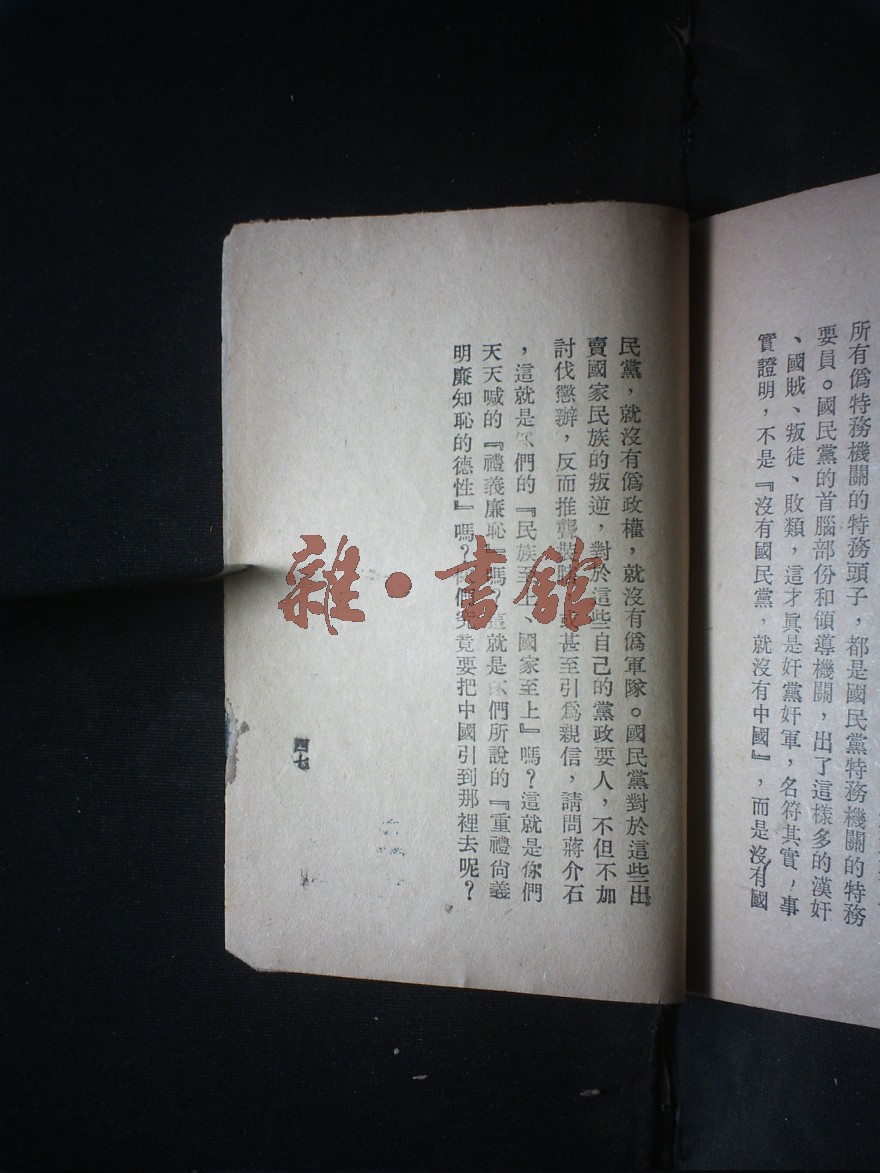 所有偽特務機關的特務頭子，都是國民黨特務機關的特務
要員。國民黨的首腦部份和領導機關，出了這樣多的漢奸
、國賊、叛徒、敗類，這才眞是奸黨奸軍，名符其實，事
實證明，不是『沒有國民黨，就沒有中國』，而是沒有國
民黨，就沒有偽政權，就沒有偽軍隊。國民黨對於這些出
賣國家民族的叛逆，對於這些自己的黨政要人，不但不加
討伐懲辦，反而推聾裝啞，或甚至引爲親信，請問蔣介石
，這就是你們的『民族至上、國家至上』嗎？這就是你們
天天喊的『禮義廉恥』嗎？這就是你們所說的『重禮尙義
明廉知恥的德性』嗎？你們究竟要把中國引到那裡去呢？
四七
雜·書館